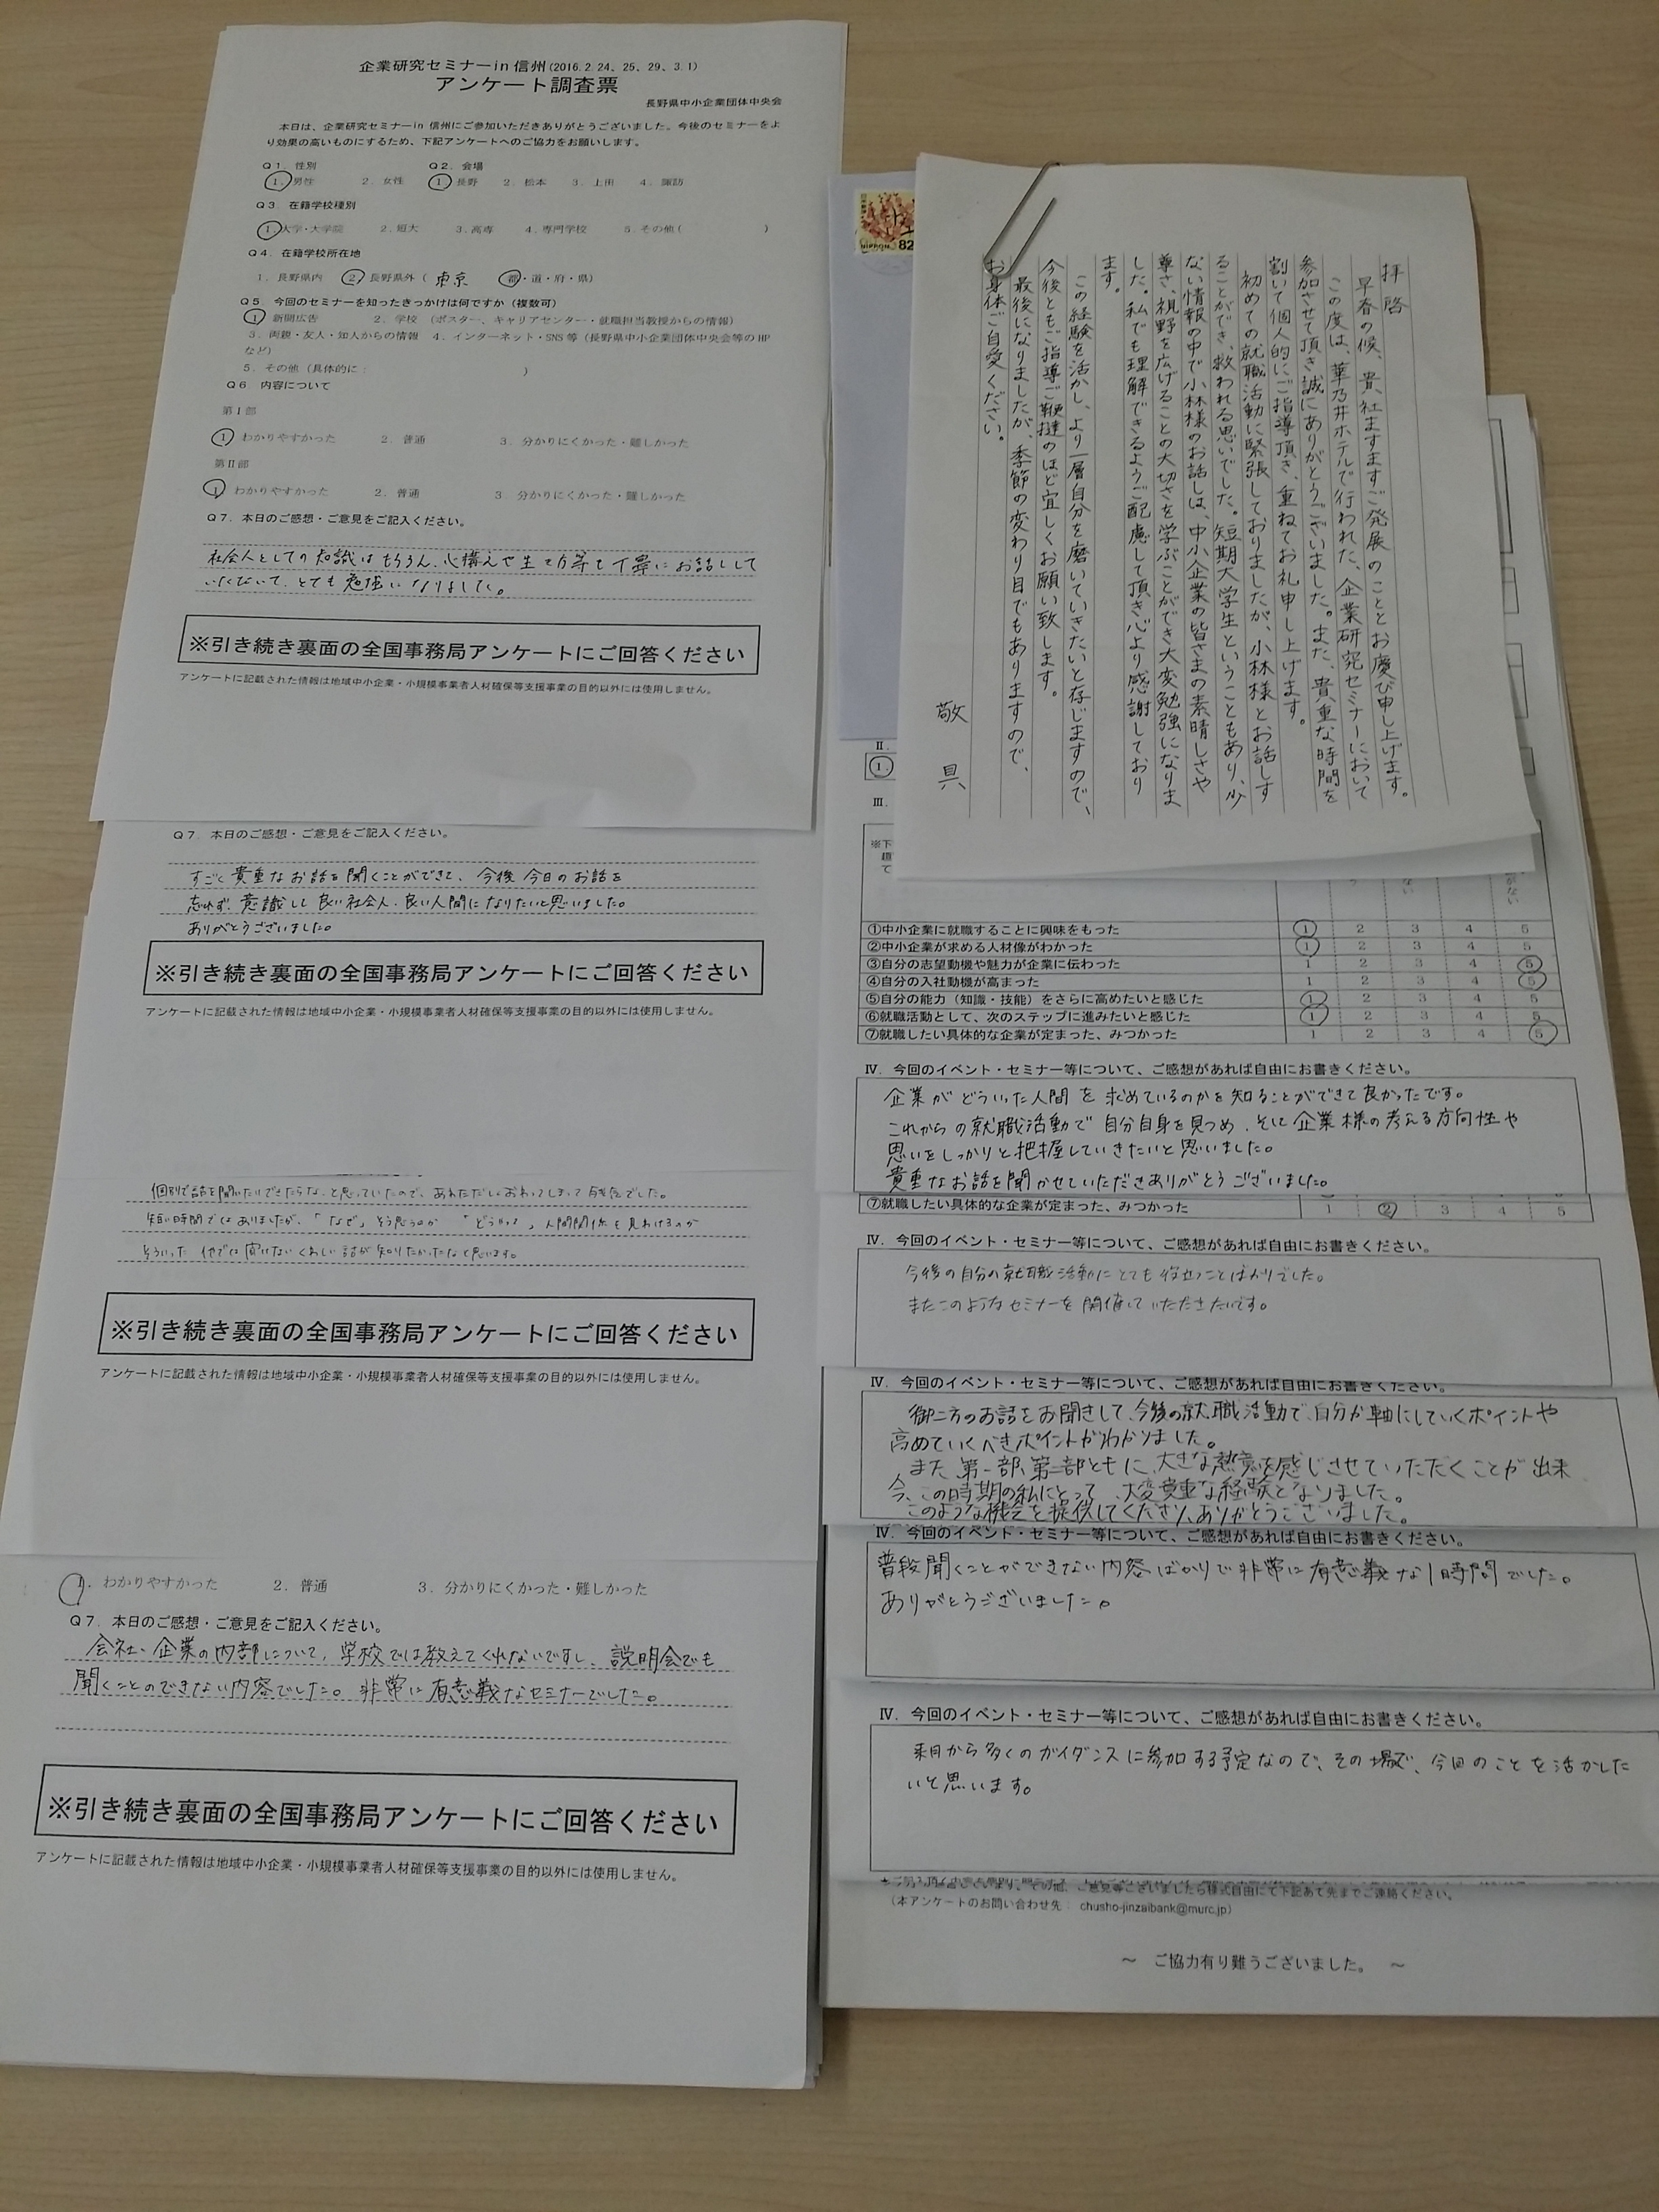 企業研究セミナーin 信州(2016.2.24、25、29、3.1)
アンケート調査票
長野県中小企業団体中央会
本日は、企業研究セミナーin 信州にご参加いただきありがとうございました。今後のセミナーをよ
り効果の高いものにするため、下記アンケートへのご協力をお願いします。
Q1. 性別 Q2. 会場
1. 男性 2. 女性 1. 長野 2. 松本 3. 上田 4. 諏訪
Q3. 在籍学校種別
1. 大学・大学院 2. 短大 3. 高専 4. 専門学校 5. その他( )
Q4. 在籍学校所在地
1. 長野県内 2. 長野県外( 東京 都・道・府・県)
Q5. 今回のセミナーを知ったきっかけは何ですか(複数可)
1. 新聞広告 2. 学校 (ポスター、キャリアセンター・就職担当教授からの情報)
3. 両親・友人・知人からの情報 4. インターネット・SNS等(長野県中小企業団体中央会等のHP
など)
5. その他(具体的に: )
Q6. 内容について
第I部
1. わかりやすかった 2. 普通 3. 分かりにくかった・難しかった
第II部
1. わかりやすかった 2. 普通 3. 分かりにくかった・難しかった
Q7. 本日のご感想・ご意見をご記入ください。
社会人としての知識はもちろん、心構えや生き方等も丁寧にお話しして
いただいて、とても勉強になりました。
※引き続き裏面の全国事務局アンケートにご回答ください
アンケートに記載された情報は地域中小企業・小規模事業者人材確保等支援事業の目的以外には使用しません。
Q7. 本日のご感想・ご意見をご記入ください。
すごく貴重なお話を聞くことができて、今後今日のお話を
忘れず、意識して良い社会人、良い人間になりたいと思いました。
ありがとうございました。
※引き続き裏面の全国事務局アンケートにご回答ください
アンケートに記載された情報は地域中小企業・小規模事業者人材確保等支援事業の目的以外には使用しません。
個別で話を聞いたりできたらな、と思っていたので、あわただしくおわってしまって残念でした。
短い時間ではありましたが、「なぜ」そう思うのか 「どうやって」人間関係を見わけるのか
そういった他では聞けないくわしい話が知りたかったなと思います。
※引き続き裏面の全国事務局アンケートにご回答ください
アンケートに記載された情報は地域中小企業・小規模事業者人材確保等支援事業の目的以外には使用しません。
1. わかりやすかった 2. 普通 3. 分かりにくかった・難しかった
Q7. 本日のご感想・ご意見をご記入ください。
会社、企業の内部について、学校では教えてくれないですし、説明会でも
聞くことのできない内容でした。非常に有意義なセミナーでした。
※引き続き裏面の全国事務局アンケートにご回答ください
アンケートに記載された情報は地域中小企業・小規模事業者人材確保等支援事業の目的以外には使用しません。
NIPPON 82
拝啓
早春の候、貴社ますますご発展のこととお慶び申し上げます。
この度は、華乃井ホテルで行われた、企業研究セミナーにおいて
参加させて頂き誠にありがとうございました。また、貴重な時間を
割いて個人的にご指導頂き、重ねてお礼申し上げます。
初めての就職活動に緊張しておりましたが、小林様とお話しす
ることができ、救われる思いでした。短期大学生ということもあり、少
ない情報の中で小林様のお話しは、中小企業の皆さまの素晴しさや
尊さ、視野を広げることの大切さを学ぶことができ大変勉強になりま
した。私でも理解できるようご配慮して頂き心より感謝しており
ます。
この経験を活かし、より一層自分を磨いていきたいと存じますので、
今後ともご指導ご鞭撻のほど宜しくお願い致します。
最後になりましたが、季節の変わり目でもありますので、
お身体ご自愛ください。
敬具
II.
1
III.
※下
て
①中小企業に就職することに興味をもった 1 2 3 4 5
②中小企業が求める人材像がわかった 1 2 3 4 5
③自分の志望動機や魅力が企業に伝わった 1 2 3 4 5
④自分の入社動機が高まった 1 2 3 4 5
⑤自分の能力(知識・技能)をさらに高めたいと感じた 1 2 3 4 5
⑥就職活動として、次のステップに進みたいと感じた 1 2 3 4 5
⑦就職したい具体的な企業が定まった、みつかった 1 2 3 4 5
Ⅳ. 今回のイベント・セミナー等について、ご感想があれば自由にお書きください。
企業がどういった人間を求めているのかを知ることができて良かったです。
これからの就職活動で自分自身を見つめ、そして企業様の考える方向性や
思いをしっかりと把握していきたいと思いました。
貴重なお話を聞かせていただきありがとうございました。
⑦就職したい具体的な企業が定まった、みつかった 1 2 3 4 5
Ⅳ. 今回のイベント・セミナー等について、ご感想があれば自由にお書きください。
今後の自分の就職活動にとても役立つことばかりでした。
またこのようなセミナーを開催していただきたいです。
Ⅳ. 今回のイベント・セミナー等について、ご感想があれば自由にお書きください。
御二方のお話をお聞きして、今後の就職活動で、自分が軸にしていくポイントや
高めていくべきポイントがわかりました。
また、第一部、第二部ともに、大きな熱意を感じさせていただくことが出来
今、この時期の私にとって、大変貴重な経験となりました。
このような機会を提供してくださり、ありがとうございました。
Ⅳ. 今回のイベント・セミナー等について、ご感想があれば自由にお書きください。
普段聞くことができない内容ばかりで非常に有意義な1時間でした。
ありがとうございました。
Ⅳ. 今回のイベント・セミナー等について、ご感想があれば自由にお書きください。
来月から多くのガイダンスに参加する予定なので、その場で、今回のことを活かした
いと思います。
その他、ご意見等ございましたら様式自由にて下記あて先までご連絡ください。
(本アンケートのお問い合わせ先: chusho-jinzaibank@murc.jp)
～ ご協力有り難うございました。 ～